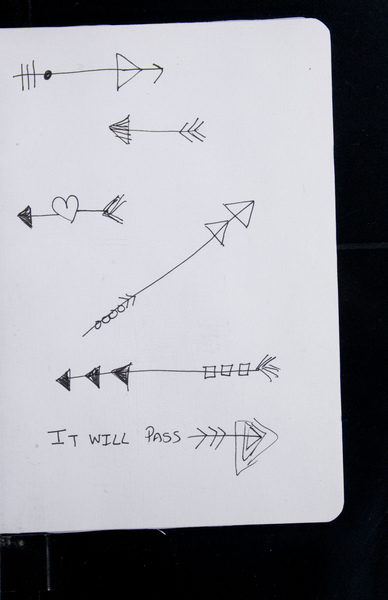 IT WILL PASS